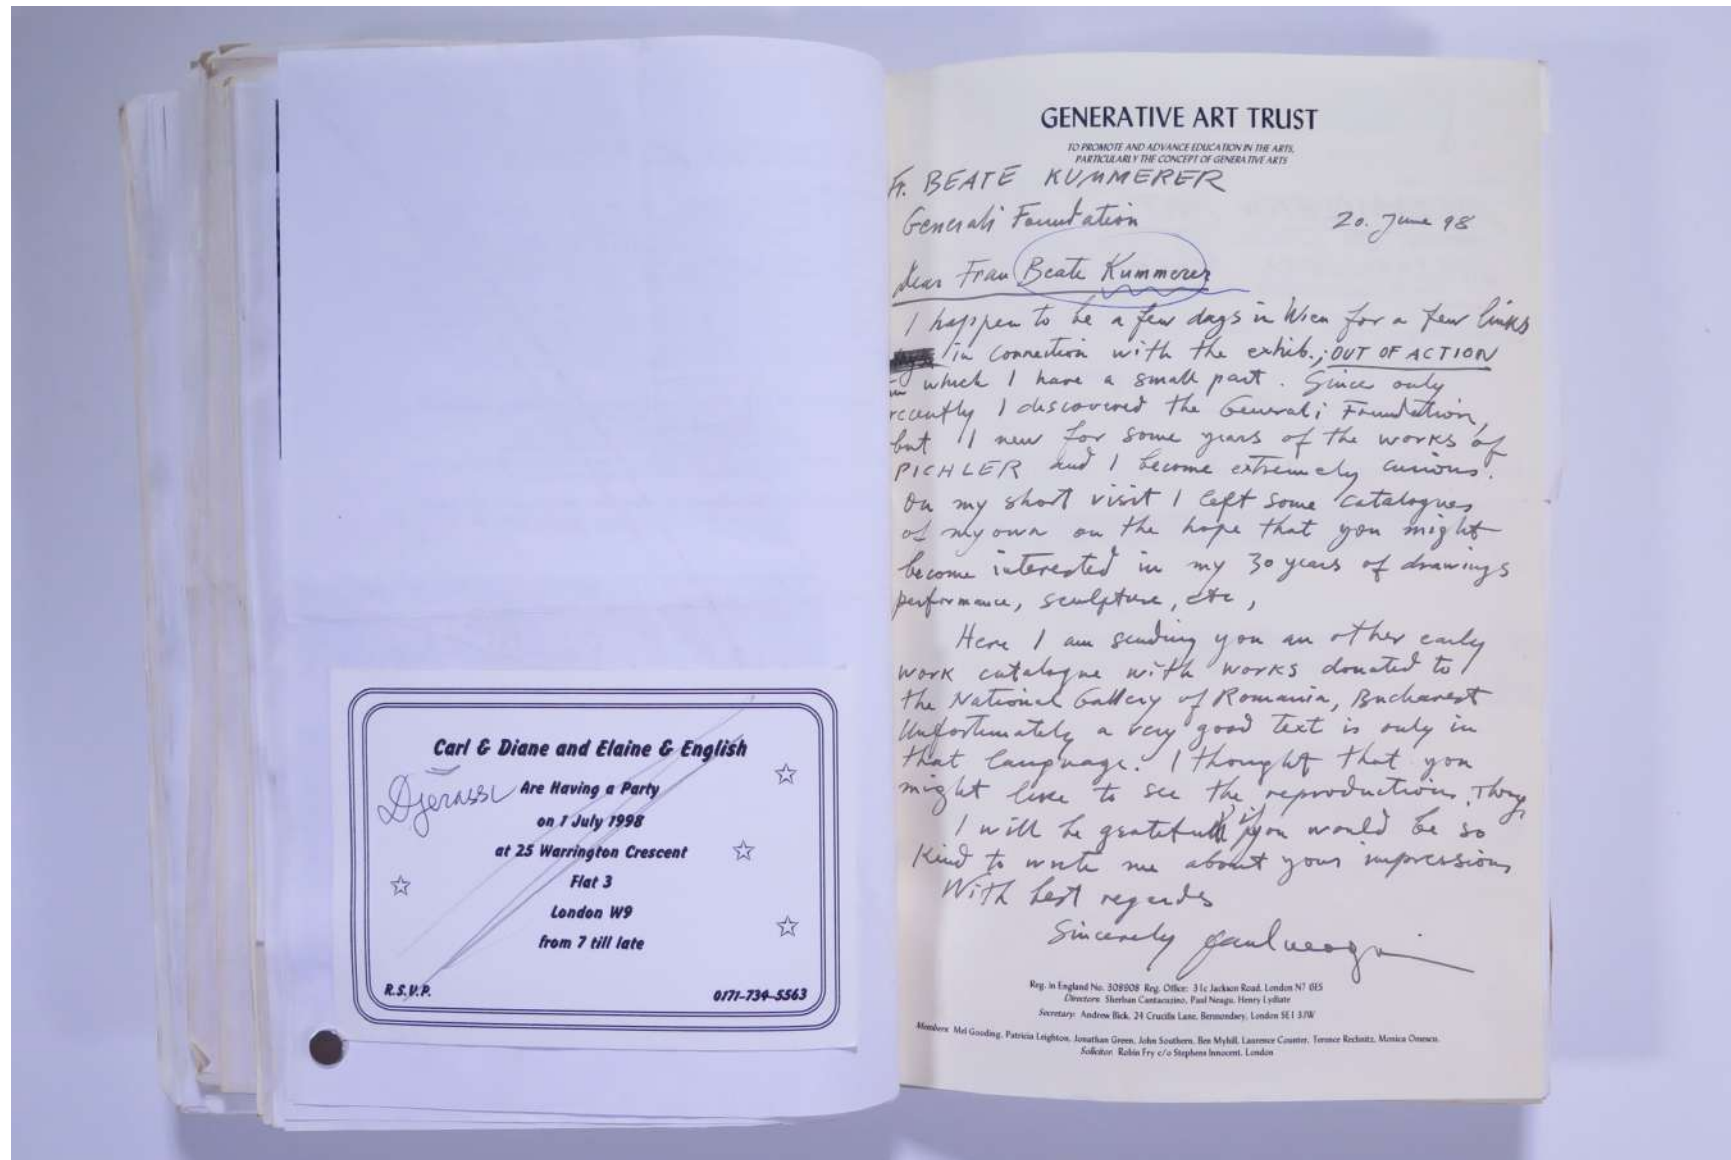 Carl & Diane and Elaine & English
Djerassi
Are Having a Party
on 1 July 1998
at 25 Warrington Crescent
Flat 3
London W9
from 7 till late
R.S.V.P.
0171-734-5563
GENERATIVE ART TRUST
TO PROMOTE AND ADVANCE EDUCATION IN THE ARTS,
PARTICULARLY THE CONCEPT OF GENERATIVE ARTS
Fr. BEATE KUMMERER
Generali Foundation 20. June 98
Dear Frau Beate Kummerer
I happen to be a few days in Wien for a few links
in connection with the exhib.; OUT OF ACTION
in which I have a small part. Since only
recently I discovered the Generali Foundation,
but I new for some years of the works of
PICHLER and I become extremely curious.
On my short visit I left some catalogues
of my own on the hope that you might
become interested in my 30 years of drawings
performance, sculpture, etc,
Here I am sending you an other early
work catalogue with works donated to
the National Gallery of Romania, Bucharest
Unfortunately a very good text is only in
that language. I thought that you
might like to see the reproductions, though
I will be grateful if you would be so
kind to write me about your impressions
With best regards
Sincerely paul neagu
Reg. in England No. 308908 Reg. Office: 31c Jackson Road, London N7 6ES
Directors: Sherban Cantacuzino, Paul Neagu, Henry Lydiate
Secretary: Andrew Bick, 24 Crucifix Lane, Bermondsey, London SE1 3JW
Members: Mel Gooding, Patricia Leighton, Jonathan Green, John Southern, Ben Myhill, Laurence Counter, Terence Rechnitz, Monica Omescu.
Solicitor: Robin Fry c/o Stephens Innocent, London